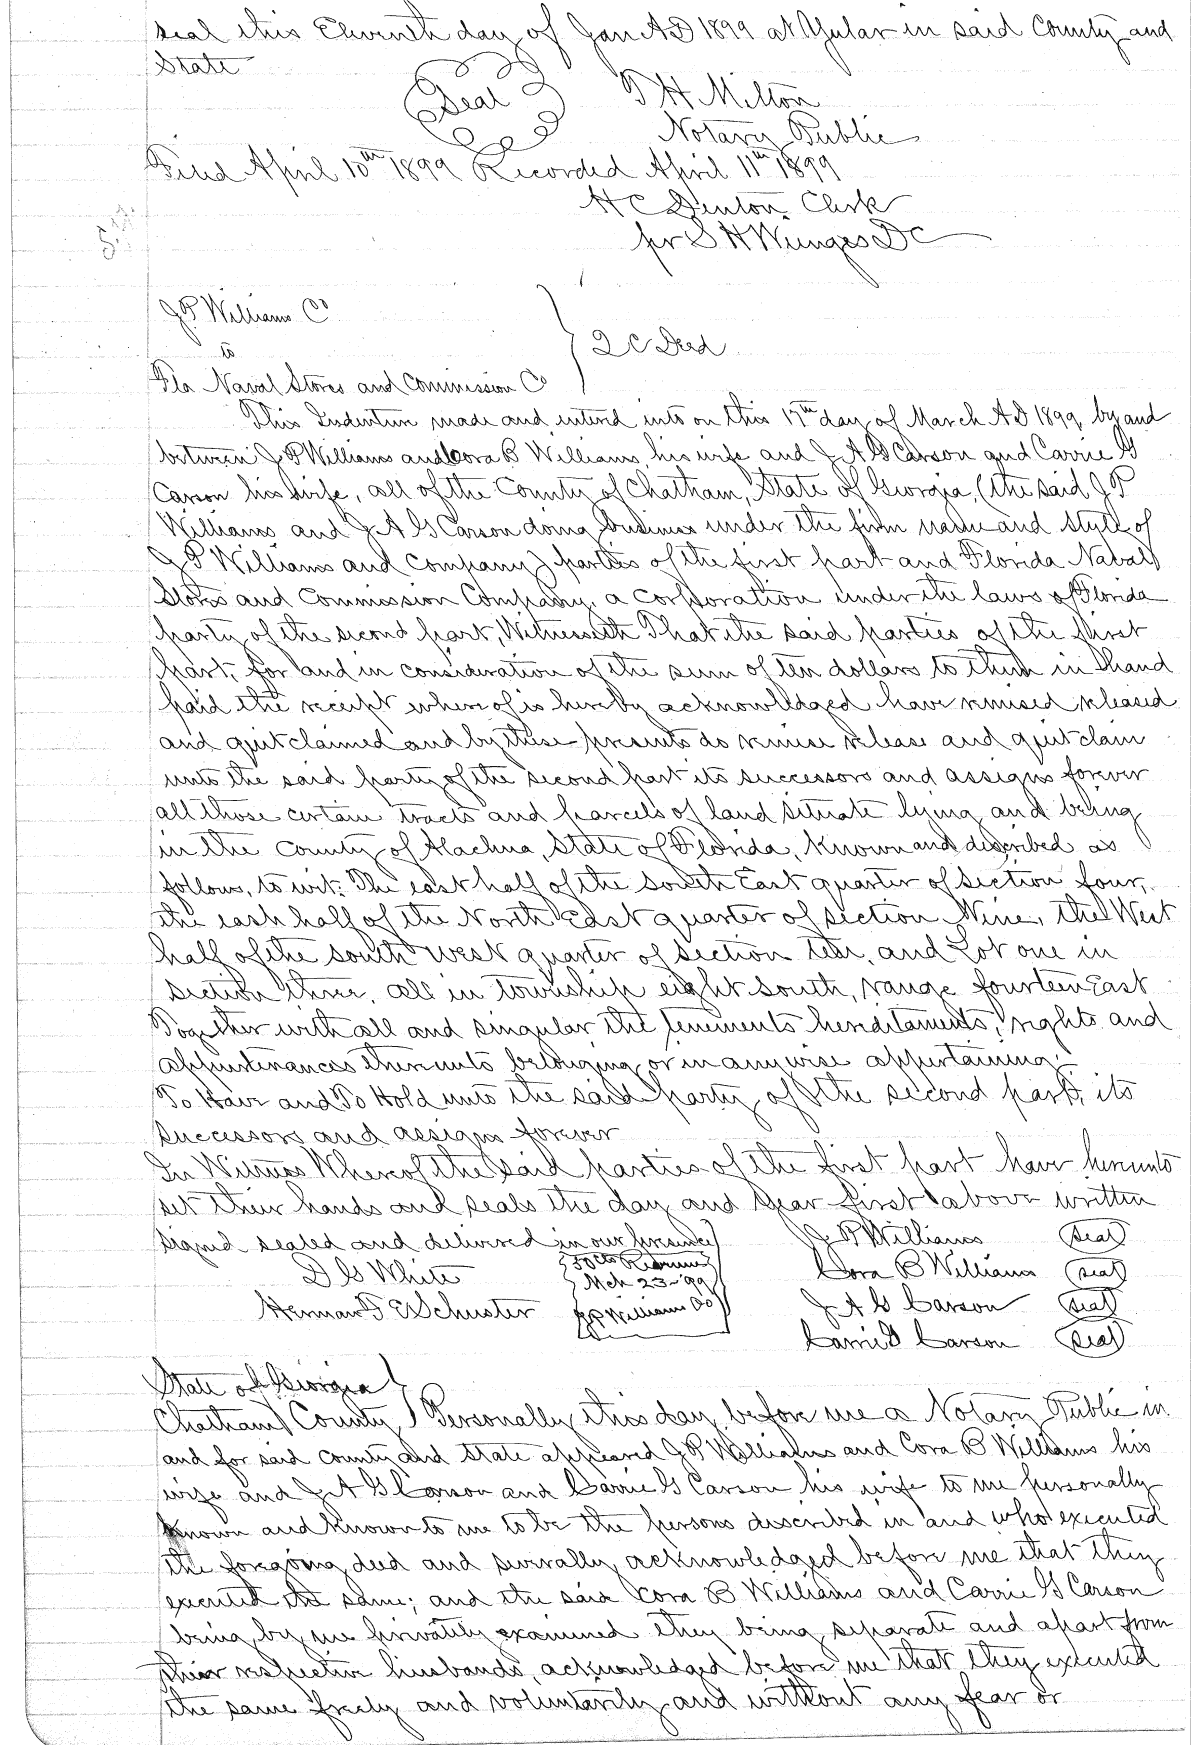 seal this Eleventh day of Jan A D 1899 at Yular in said County and
State
Seal
T H Milton
Notary Public
Filed April 10th 1899 Recorded April 11th 1899
H C Denton Clerk
pr S H Wienges D C
J P Williams Co
to
Q C Deed
Fla Naval Stores and Commission Co
This Indenture made and entered into on this 17th day of March A D 1899 by and
between J P Williams and Cora B Williams his wife and J A G Carson and Carrie G
Carson his wife, all of the County of Chatham, State of Georgia, (the said J P
Williams and J A G Carson doing business under the firm name and style of
J P Williams and Company) parties of the first part and Florida Naval
Stores and Commission Company, a corporation under the laws of Florida
party of the second part, Witnesseth That the said parties of the first
part, for and in consideration of the sum of ten dollars to them in hand
paid the receipt whereof is hereby acknowledged have remised released
and quitclaimed and by these presents do remise release and quitclaim
unto the said party of the second part its successors and assigns forever
all those certain tracts and parcels of land situate lying and being
in the County of Alachua, State of Florida, known and described as
follows, to wit: The east half of the South East quarter of section four,
the east half of the North East quarter of section Nine, the West
half of the south west quarter of section ten, and Lot one in
section three, all in township eight south, range fourteen East
Together with all and singular the tenements hereditaments, rights and
appurtenances thereunto belonging or in anywise appertaining:
To Have and To Hold unto the said party of the second part, its
successors and assigns forever
In Witness Whereof the said parties of the first part have hereunto
set their hands and seals the day and year first above written
signed sealed and delivered in our presence J P Williams seal
D G White 50 cts Revenue Cora B Williams seal
Mch 23-'99
Herman F E Schuster J P Williams Co J A G Carson seal
Carrie G Carson seal
State of Georgia
Chatham County Personally this day before me a Notary Public in
and for said county and state appeared J P Williams and Cora B Williams his
wife and J A G Carson and Carrie G Carson his wife to me personally
known and known to me to be the persons described in and who executed
the foregoing deed and severally acknowledged before me that they
executed the same; and the said Cora B Williams and Carrie G Carson
being by me privately examined they being separate and apart from
their respective husbands, acknowledged before me that they executed
the same freely and voluntarily and without any fear or